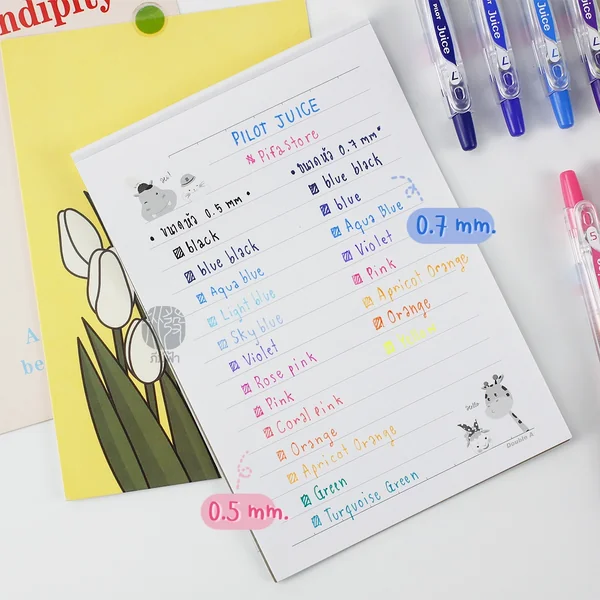 ndipity
PILOT JUICE
Pifastore
• ขนาดหัว 0.5 mm •
black
blue black
Aqua blue
Light blue
Sky blue
Violet
Rose pink
Pink
Coral pink
Orange
Apricot Orange
Green
Turquoise Green
0.5 mm.
• ขนาดหัว 0.7 mm •
blue black
blue
Aqua Blue
Violet
Pink
Apricot Orange
Orange
Yellow
0.7 mm.
Double A
PILOT Juice 7
Juice 7
Juice 7
7
5
A
be